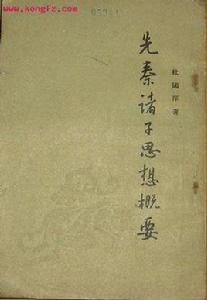 www.kongfz.c
先秦诸子思想概要
杜國庠著